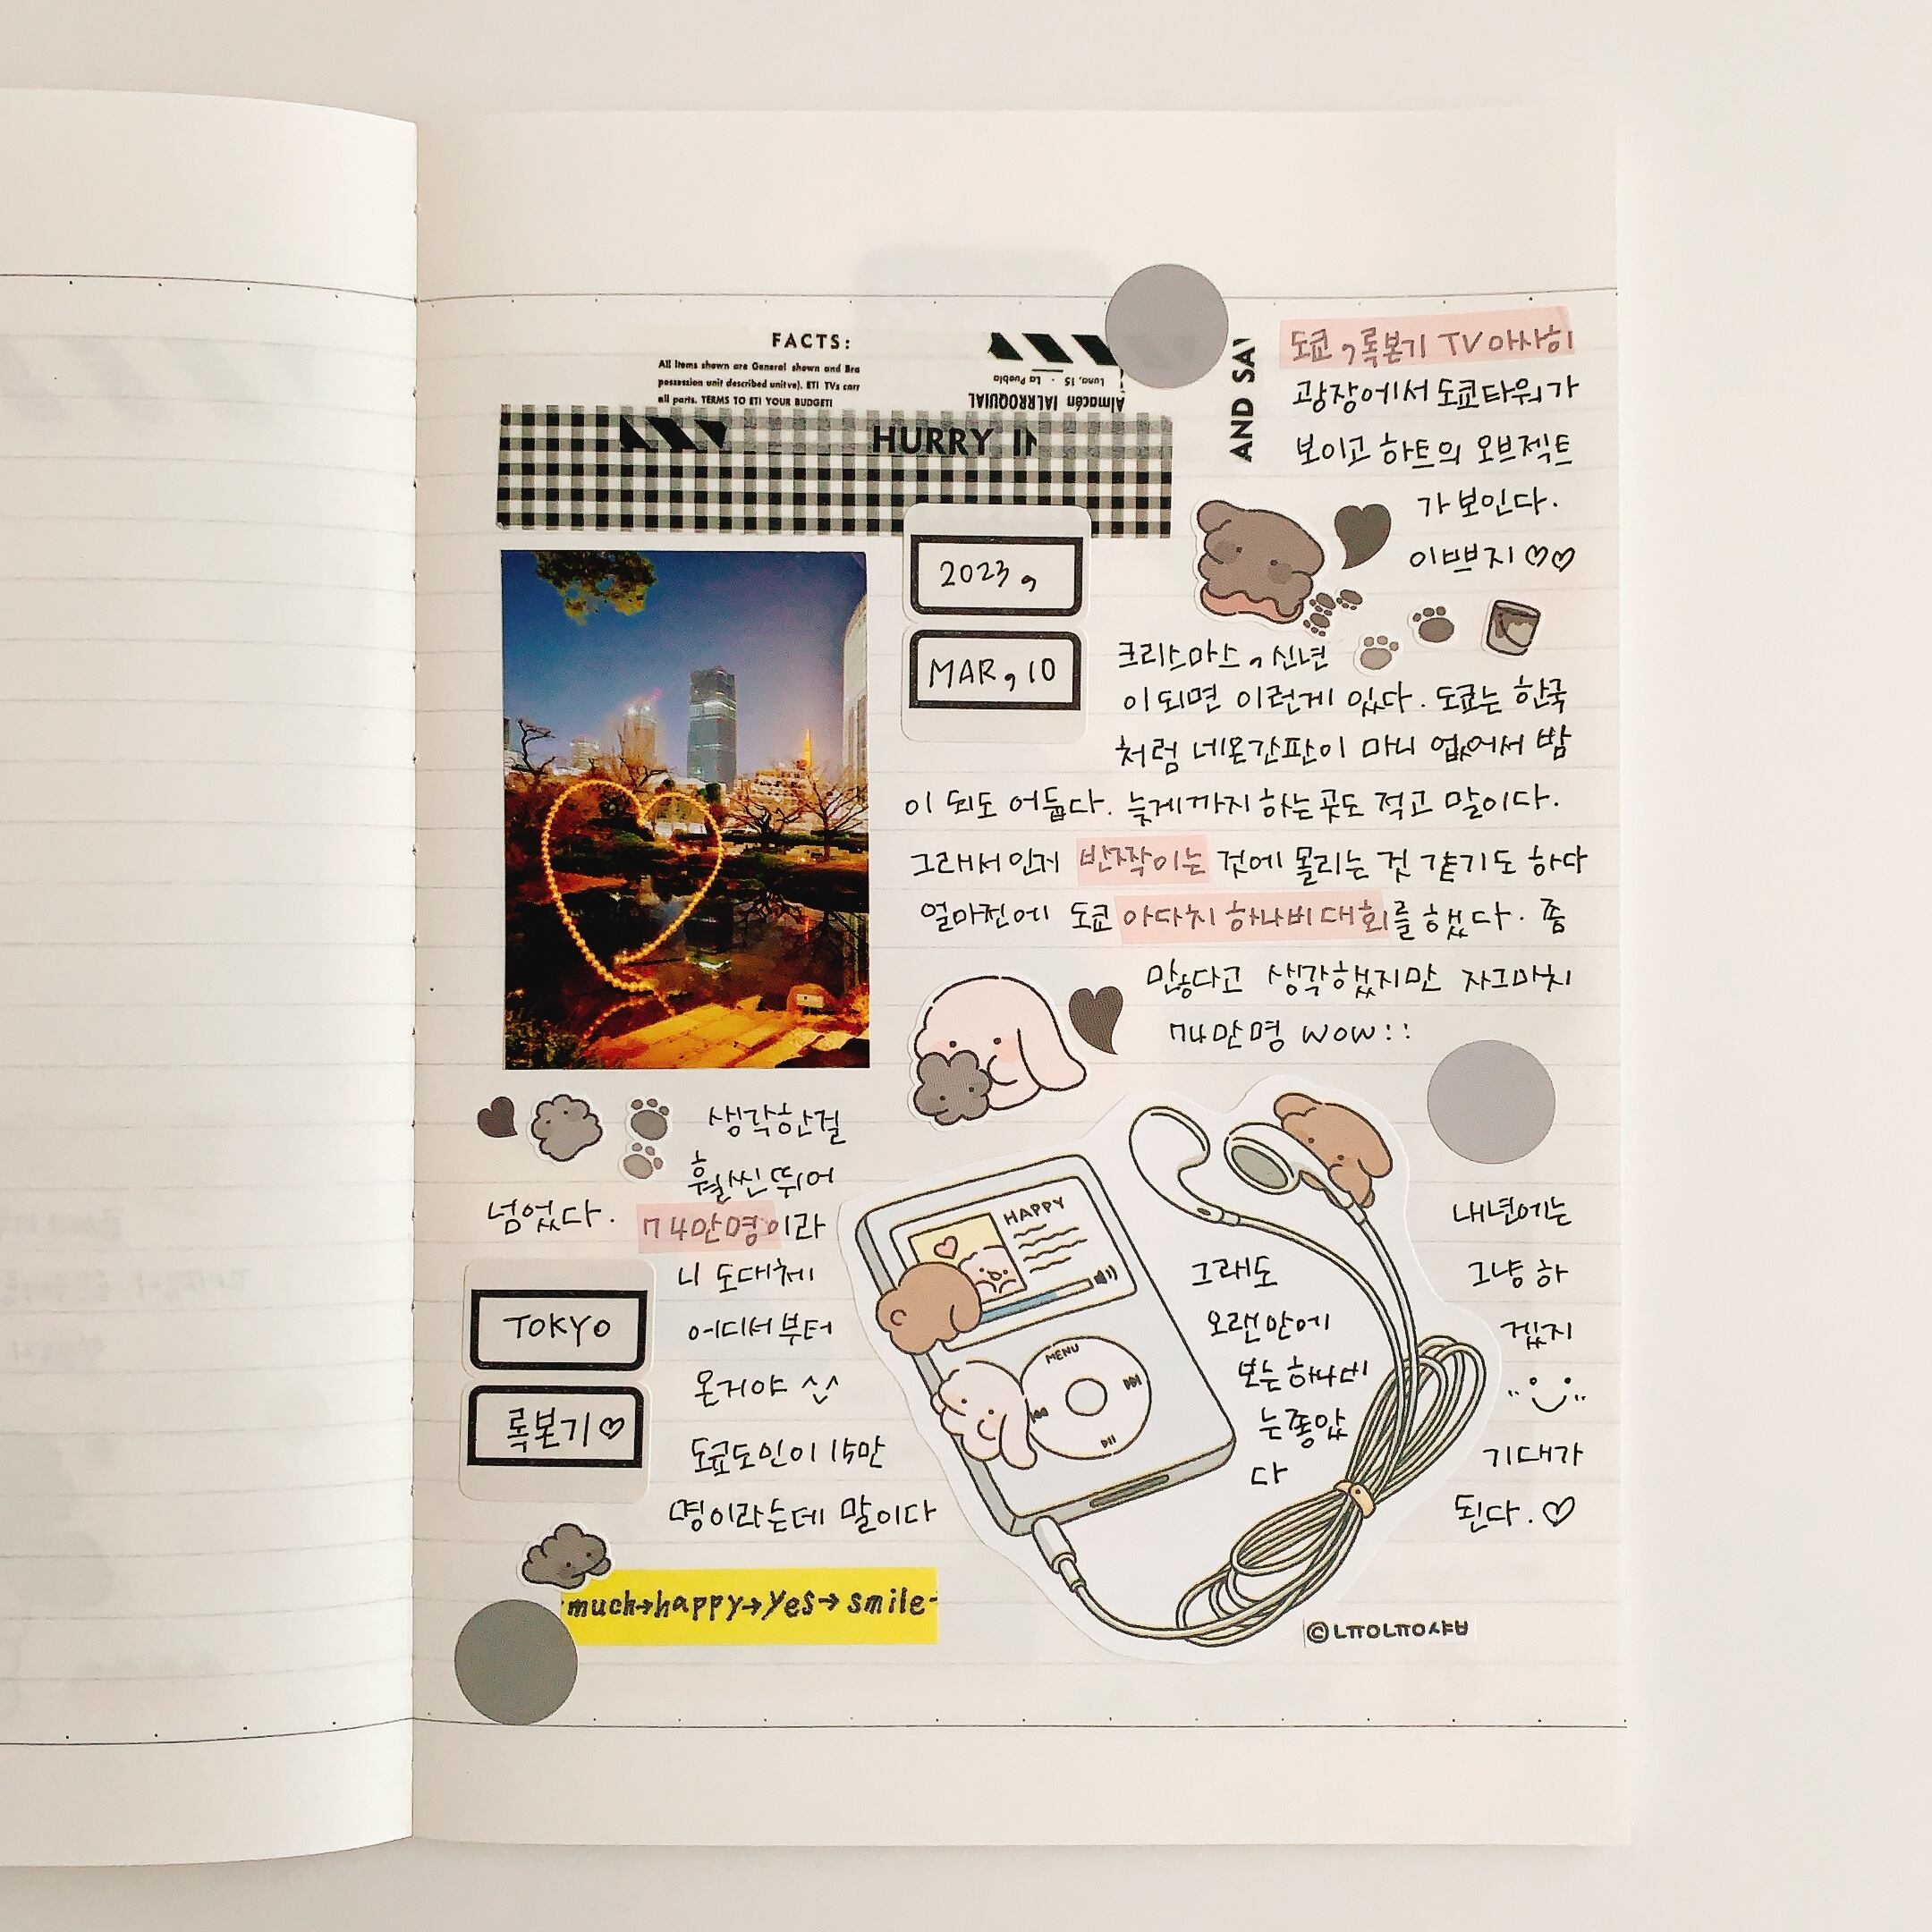 FACTS:
All Items shown are General shown and Bra
possession unit described unitve). ETI TVs carr
all parts. TERMS TO ETI YOUR BUDGETI
Luna, 15 · La Puebla
Almacén IALRROQUIAL
HURRY IN
AND SA
도쿄, 록본기 TV 아사히
광장에서 도쿄타워가
보이고 하트의 오브젝트
가 보인다.
이쁘지 ♡♡
2023,
MAR, 10
크리스마스, 신년
이 되면 이런게 있다. 도쿄는 한국
처럼 네온간판이 마니 없어서 밤
이 되도 어둡다. 늦게까지 하는곳도 적고 말이다.
그래서인지 반짝이는 것에 몰리는 것 같기도 하다
얼마전에 도쿄 아다치 하나비 대회를 했다. 좀
만타고 생각했지만 자그마치
74만명 WOW::
생각한걸
훨씬 뛰어
넘었다. 74만명이라
니 도대체
어디서부터
온거야 ^^
도쿄도인이 15만
명이라는데 말이다
TOKYO
록본기♡
much→happy→Yes→smile-
HAPPY
MENU
그래도
오랜만에
보는 하나비
는 좋았
다
내년에는
그냥 하
겠지
기대가
된다. ♡
©LㅠOLㅠO샤ㅂ